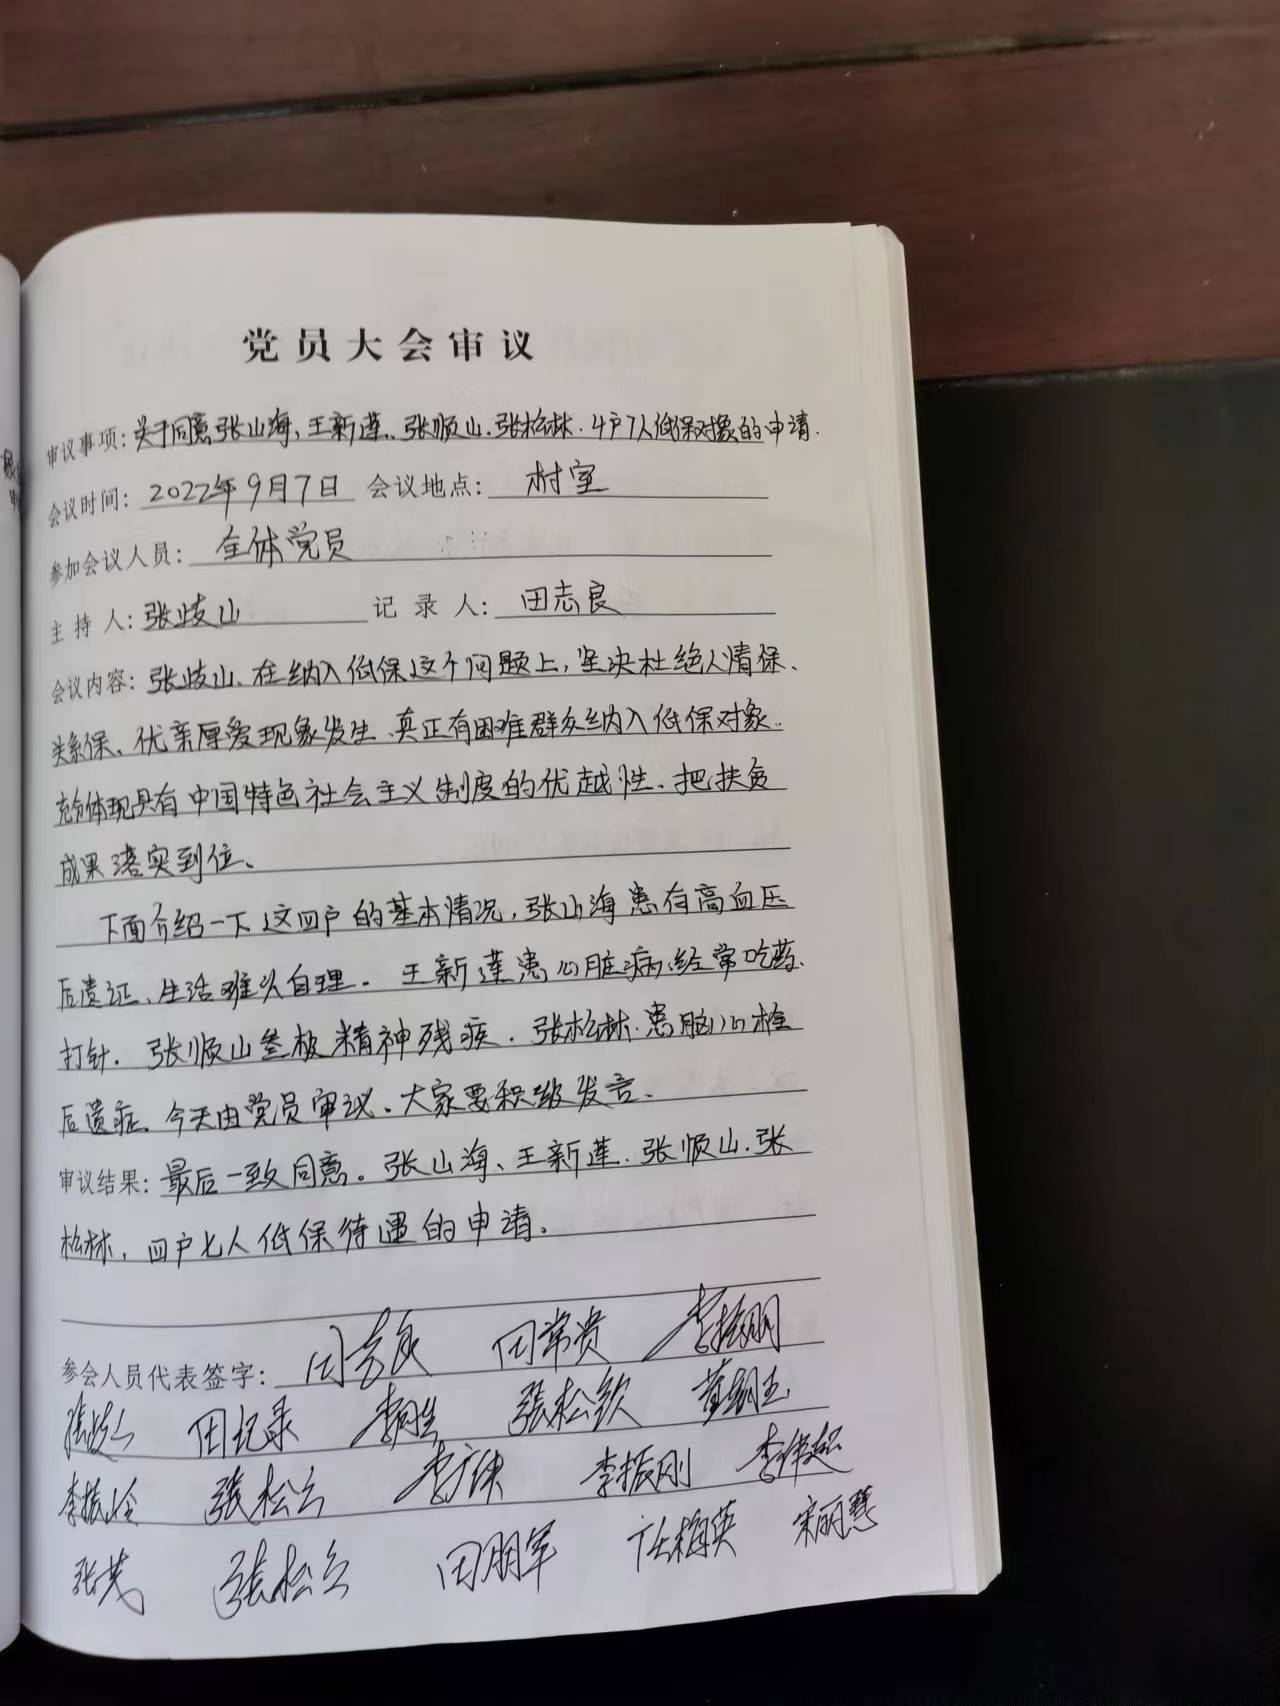 党员大会审议
审议事项:关于同意张山海、王新莲、张顺山.张松林.4户7人低保对象的申请.
会议时间:2022年9月7日 会议地点:村室
参加会议人员:全体党员
主持人:张岐山 记录人:田志良
会议内容:张岐山、在纳入低保这个问题上,坚决杜绝人情保、
关系保、优亲厚爱现象发生.真正有困难群众纳入低保对象.
充分体现具有中国特色社会主义制度的优越性、把扶贫
成果落实到位、
下面介绍一下这四户的基本情况,张山海患有高血压
后遗证、生活难以自理。王新莲患心脏病、经常吃药、
打针.张顺山叁极精神残疾.张松林.患脑心栓
后遗症.今天由党员审议、大家要积级发言.
审议结果:最后一致同意。张山海、王新莲.张顺山.张
松林,四户七人低保待遇的申请.
参会人员代表签字:田志良 田常贵 李振朋
张岐山 田记录 张松钦
张松立 李振刚 李伟超
张茂 张松立 田朋军 任梅英 宋丽慧